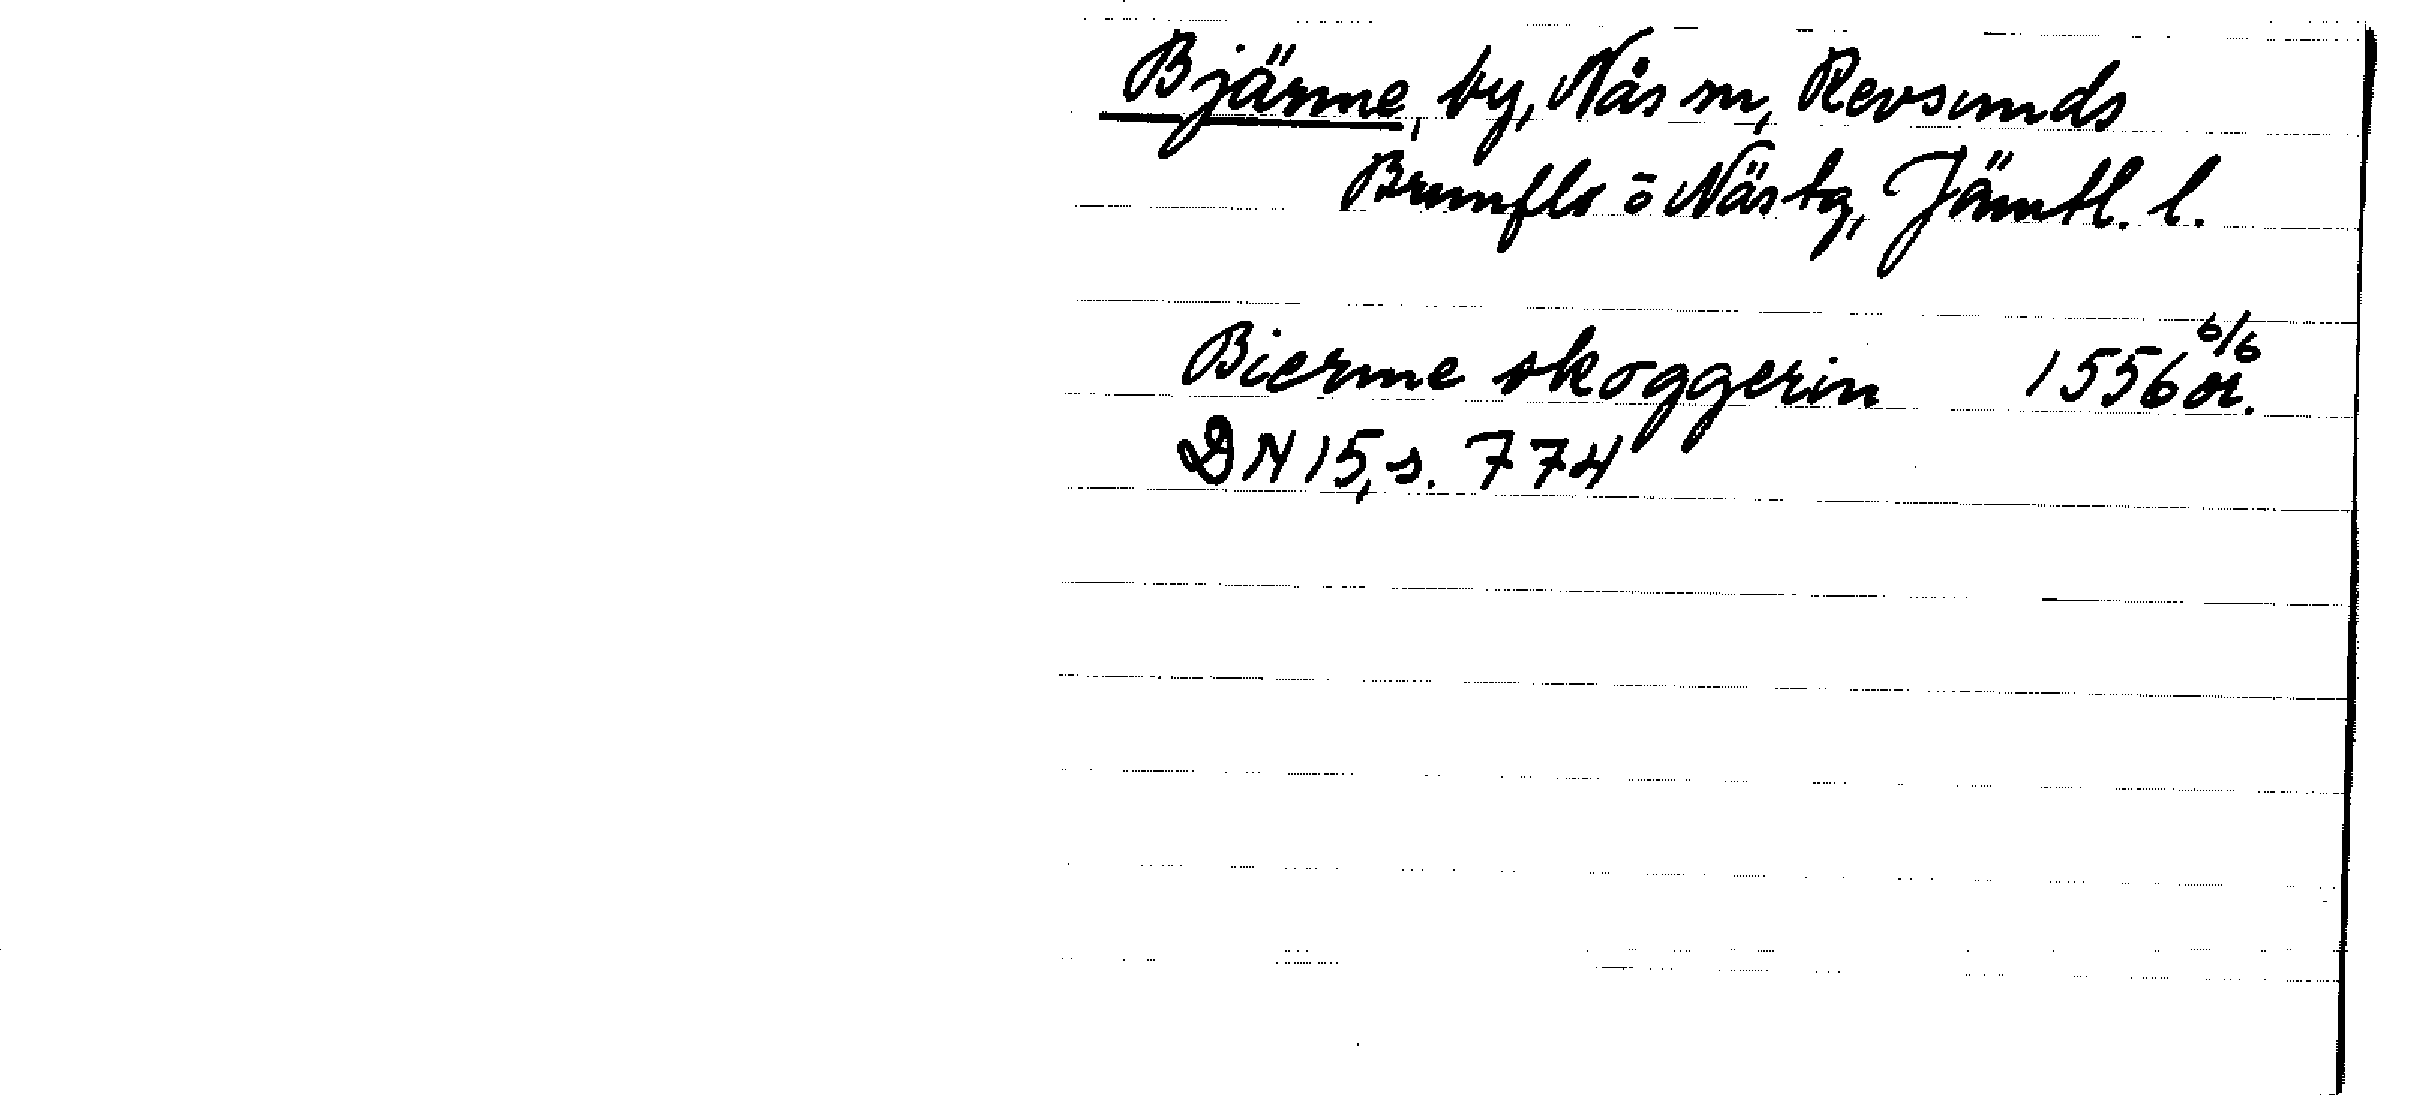 Bjärme, by, Näs sn, Revsunds
Brunflo o Näs tg, Jämtl. l.
Bierme skoggerin 1556 6/6 or.
DN 15, s. 774